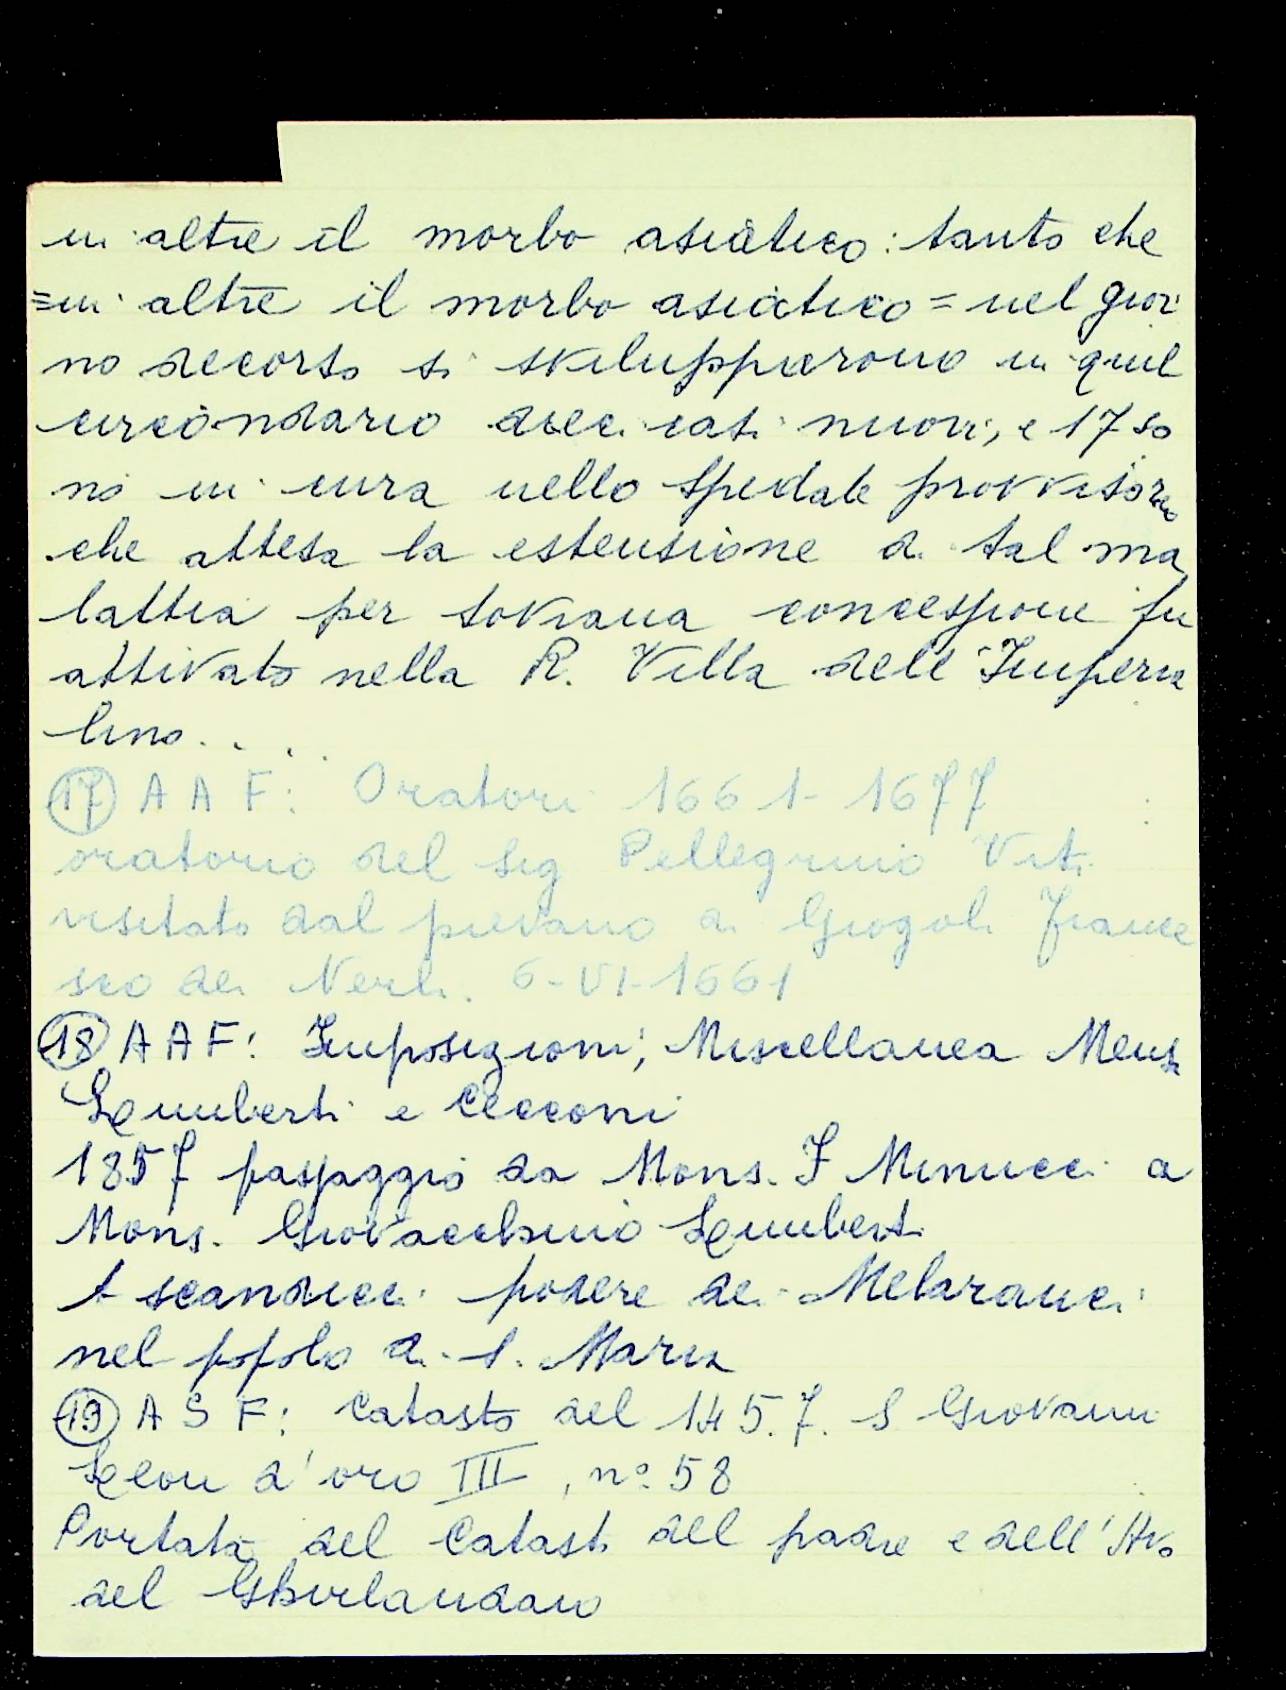 in altre il morbo asiatico: tanto che
=in altre il morbo asiatico= nel gior
no decorso si svilupparono in quel
circondario dieci casi nuovi, e 17 so
no in cura nello spedale provvisorio
che attesa la estensione di tal ma
lattia per sovrana concessione fu
attivato nella R. Villa dell'Imperia
lino....
(17) AAF: Oratori 1661-1677
oratorio del Sig Pellegrino Viti
visitato dal pievano di Giogoli France
sco de Nerli. 6-VI-1661
(18) AAF: Imposizioni; Miscellanea Mens
Limberti e Cecconi
1857 passaggio da Mons. F Minucci a
Mons. Giovacchino Limberti
A scandicci podere dei Melaranci
nel popolo di S. Maria
(19) ASF: Catasto del 1457. S Giovanni
Leon d'oro III, n° 58
Portata del Catasto del padre e dell'Avo
del Ghirlandaio